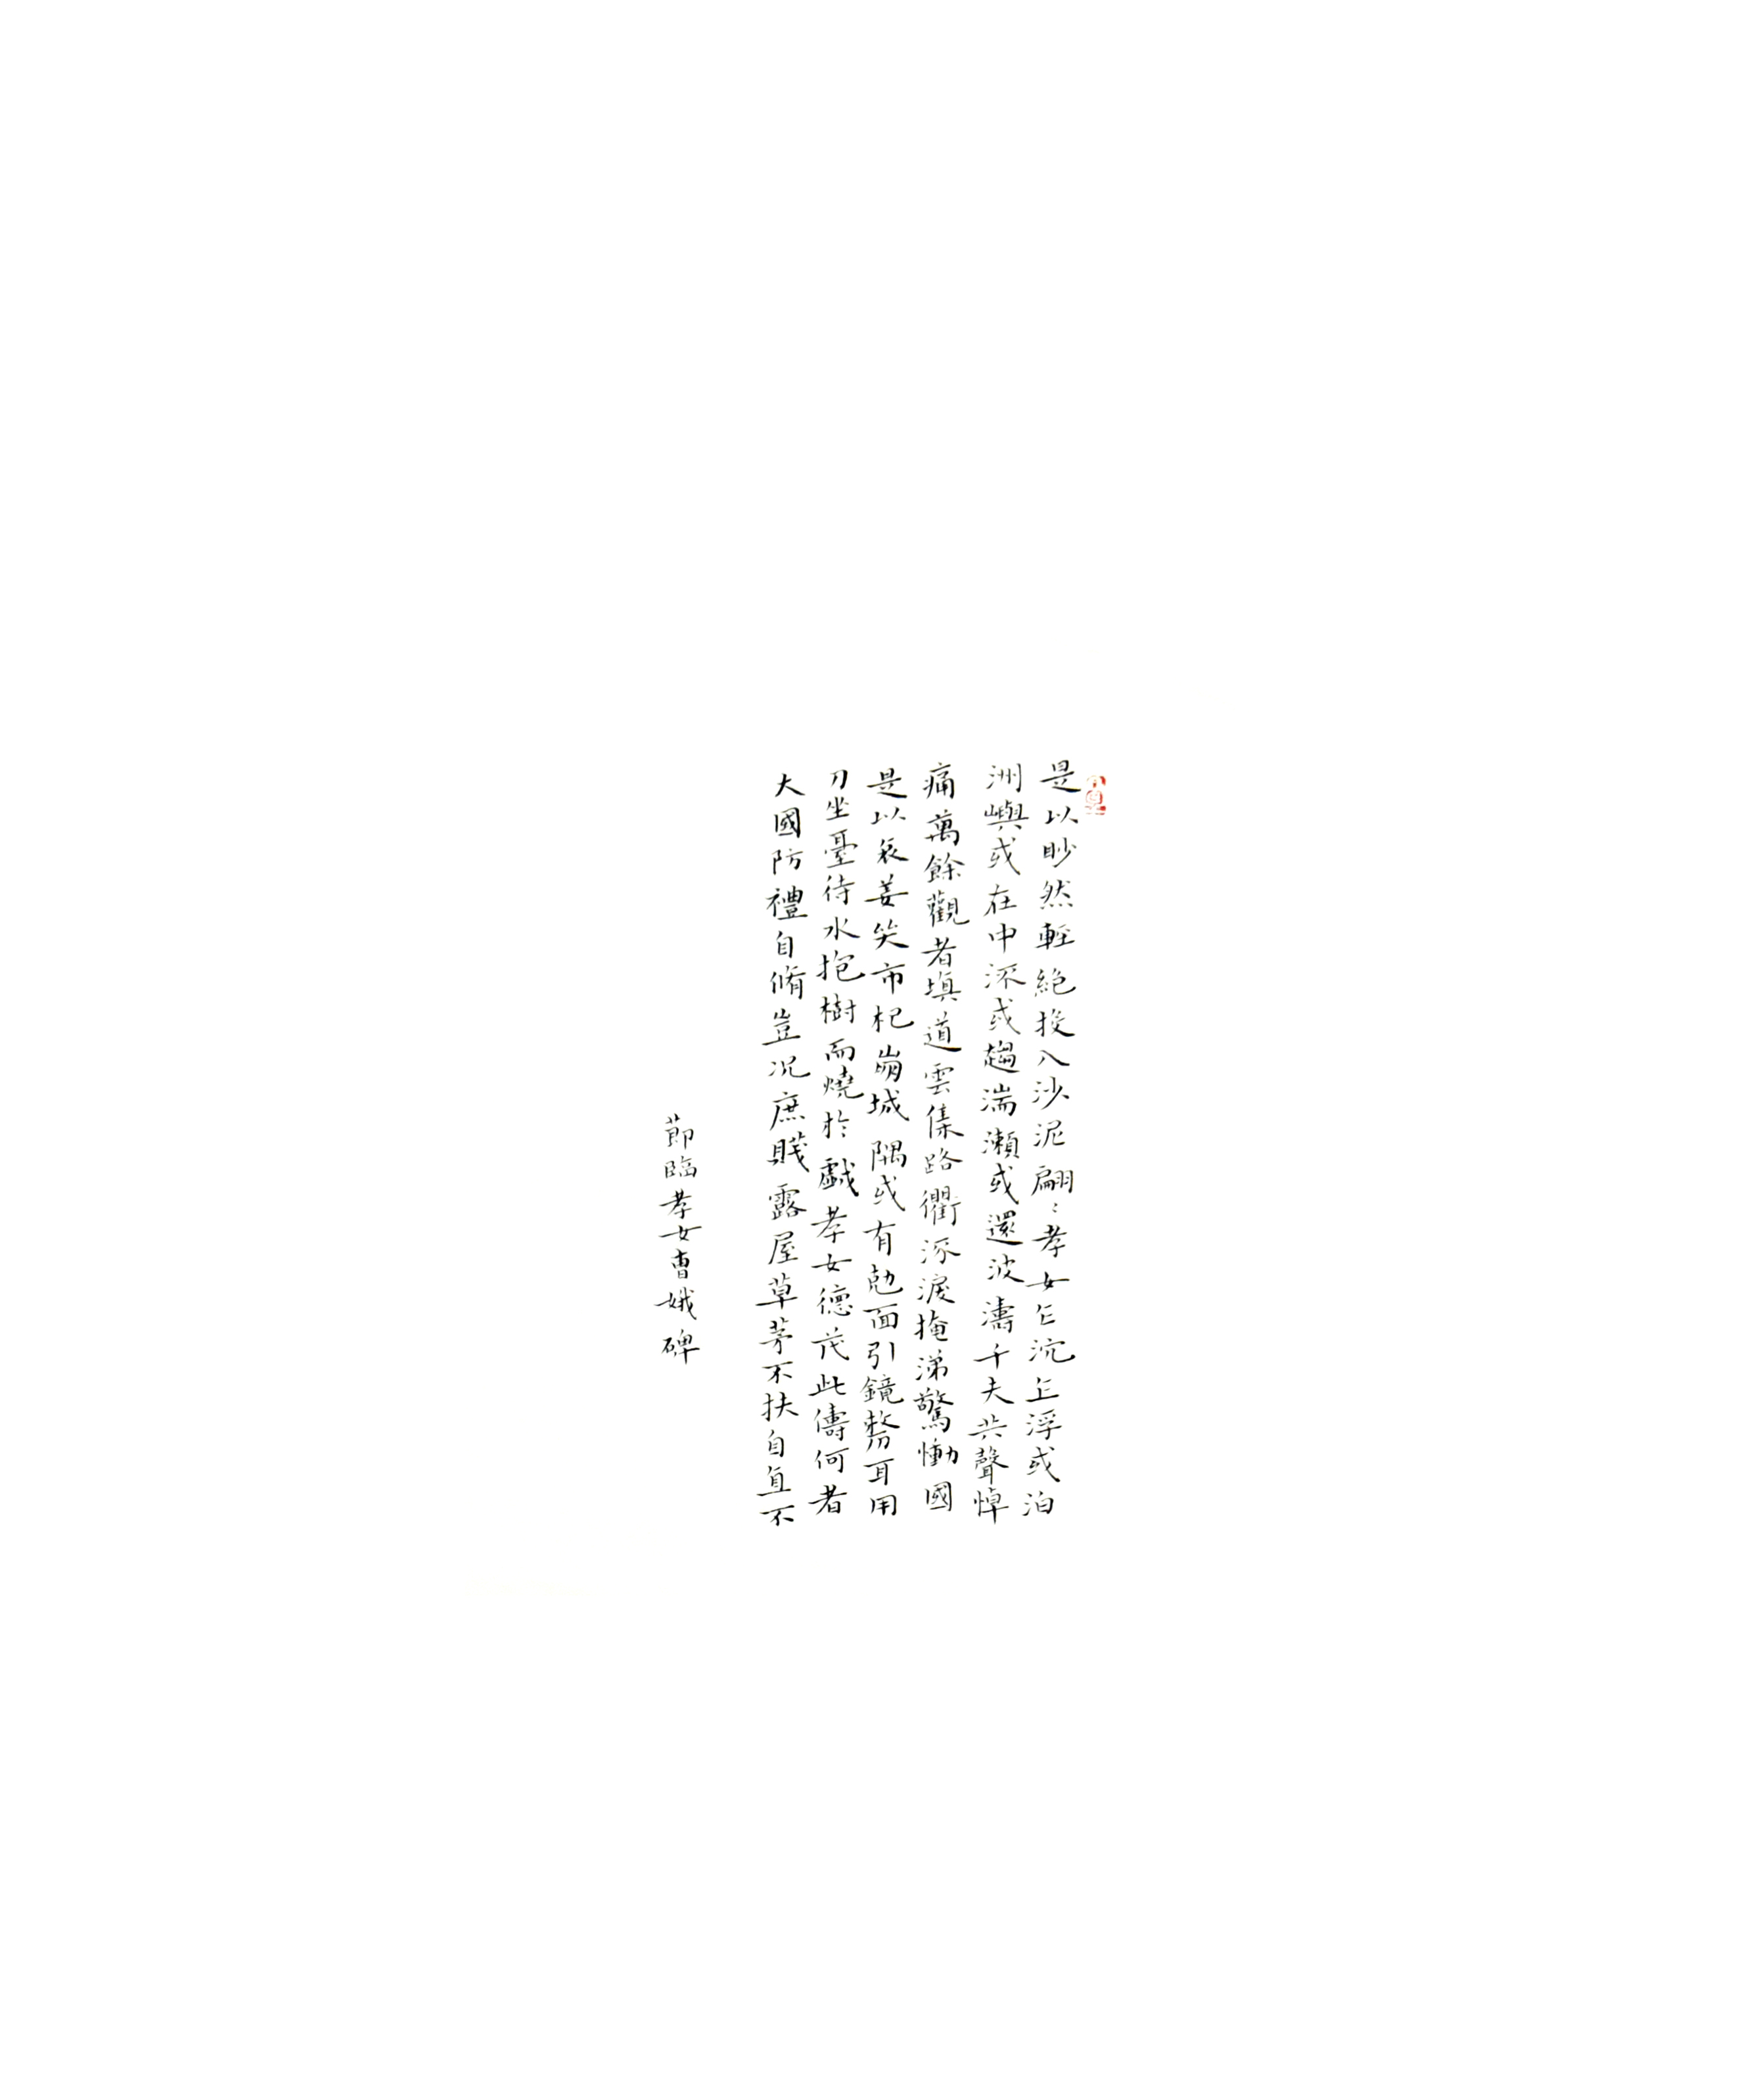 是以眇然輕絕投入沙泥翩〻孝女乍沉乍浮或泊
洲嶼或在中流或趨湍瀨或還波濤千夫共聲悼
痛萬餘觀者填道雲集路衢流淚掩涕驚慟國
是以哀姜哭市杞崩城隅或有尅面引鏡剺耳用
刀坐臺待水抱樹而燒於戲孝女德茂此儔何者
大國防禮自脩豈況庶賤露屋草茅不扶自直不
節臨孝女曹娥碑